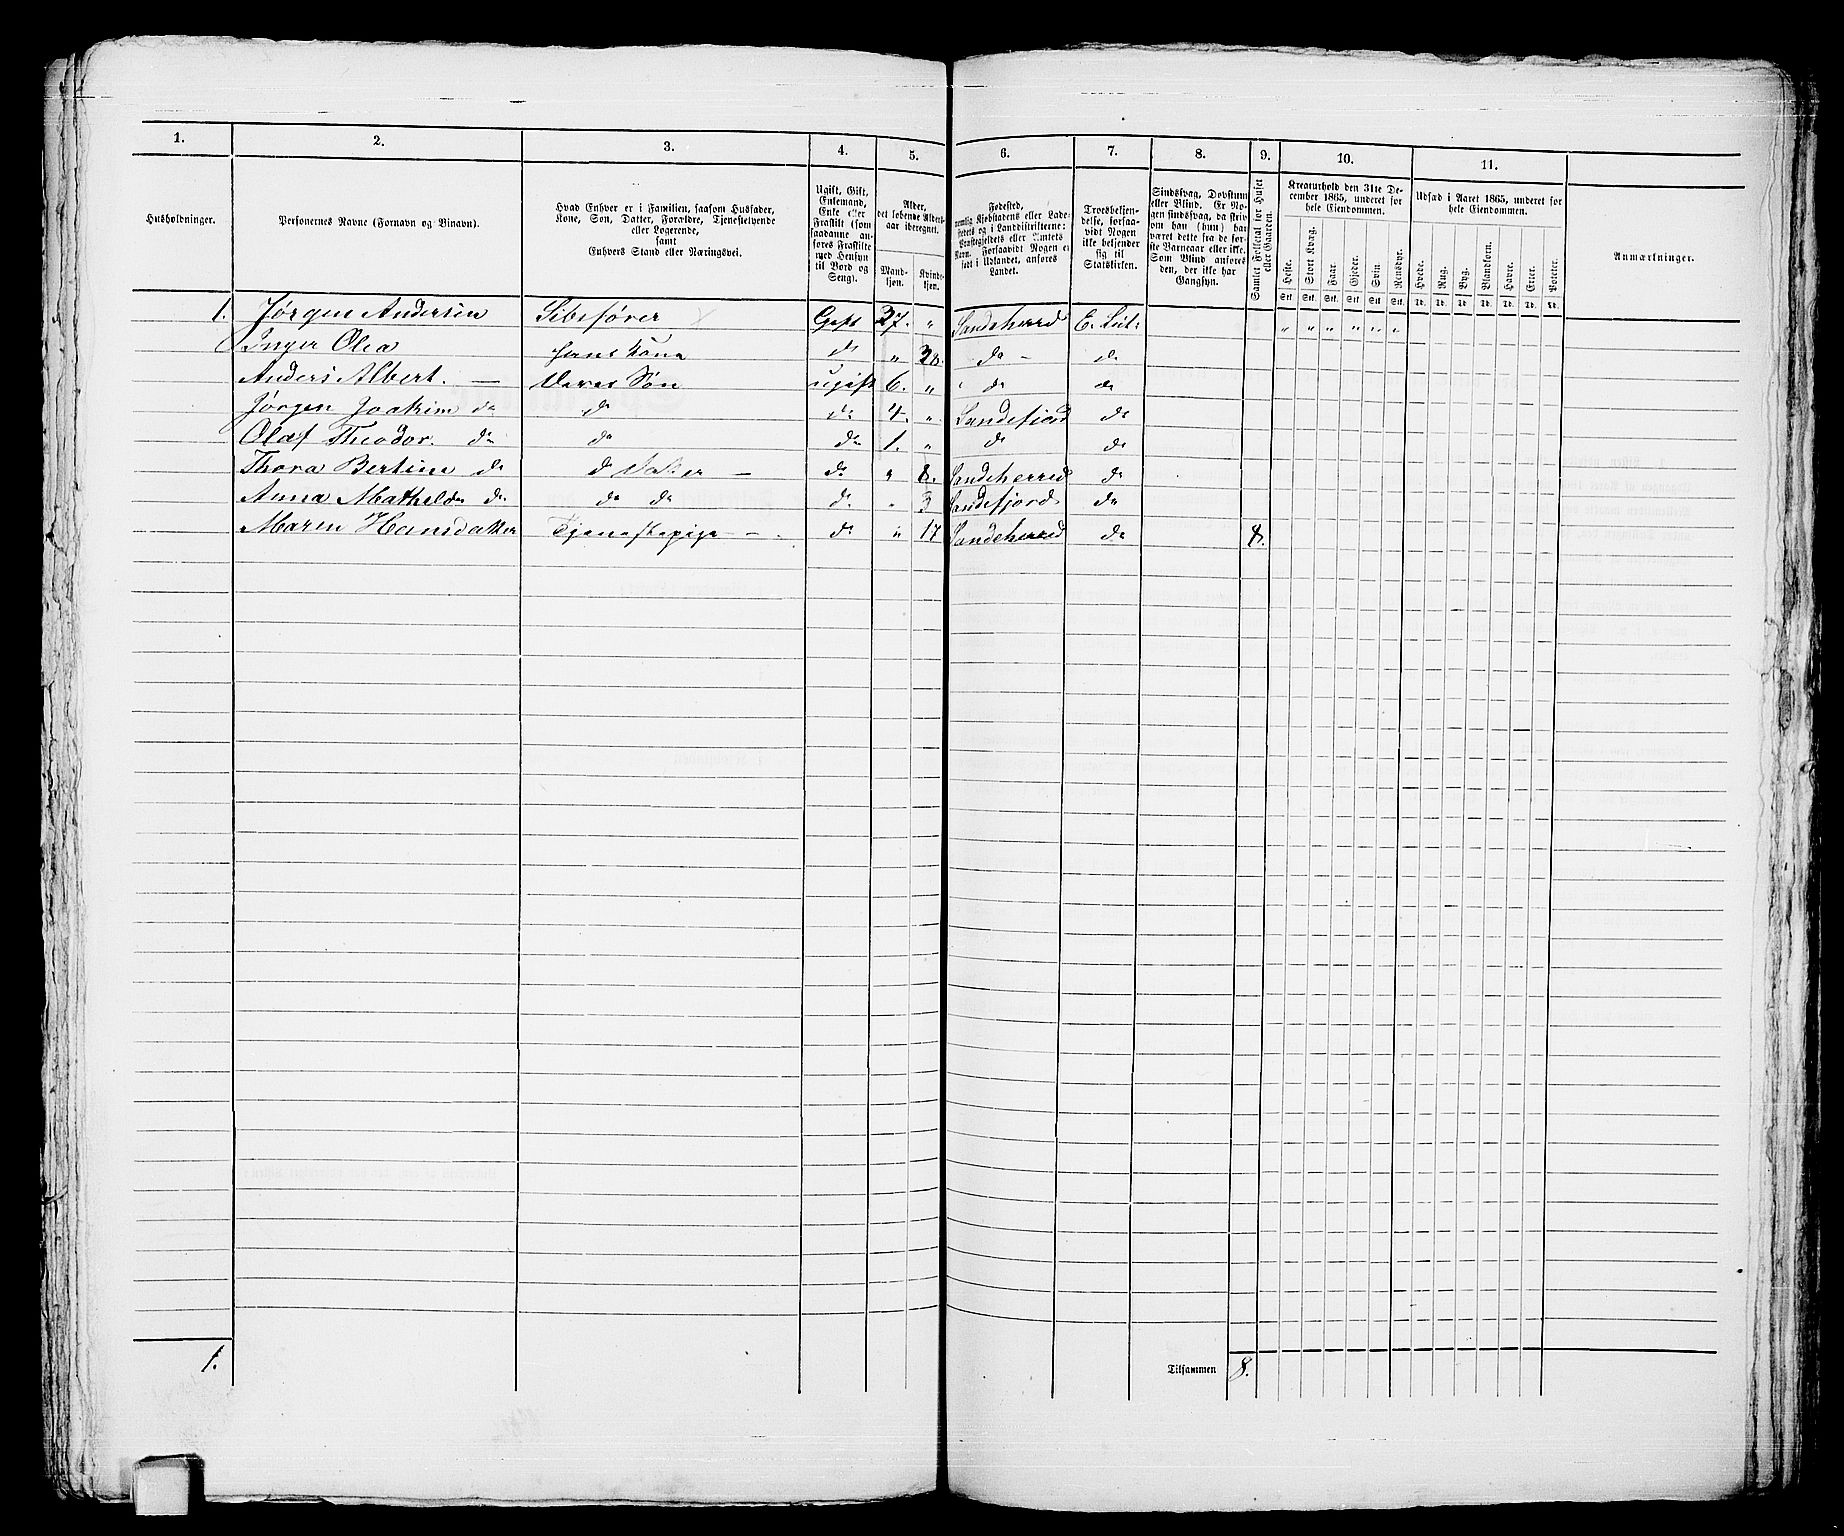 1. 2. 3. 4. 5. 6. 7. 8. 9. 10. 11.
Husholdninger.
Personernes Navne (Fornavn og Binavn).
Hvad Enhver er i Familien, saasom Husfader,
Kone, Søn, Datter, Forældre, Tjenestetyende
eller Logerende,
samt
Enhvers Stand eller Næringsvei.
Ugift, Gift,
Enkemand,
Enke eller
Fraskilt (som
saadanne an-
føres Fraskilte
med Hensyn
til Bord og
Seng).
Alder,
det løbende Alders-
aar iberegnet.
Mand-
kjøn.
Kvinde-
kjøn.
Fødested,
nemlig Kjøbstadens eller Lade-
stedets og i Landdistrikterne:
Præstegjeldets eller Amtets
Navn. Forsaavidt Nogen er
født i Udlandet, anføres
Landet.
Troesbekjen-
delse, forsaa-
vidt Nogen
ikke bekjender
sig til
Statskirken.
Sindssvag, Døvstum
eller Blind. Er No-
gen sindssvag, da skriv
om han (hun) har
været dette fra de før-
ste Barneaar eller ikke.
Som Blind anføres
den, der ikke har
Gangsyn.
Samlet Folketal for Huset
eller Gaarden.
Kreaturhold den 31te De-
cember 1865, underet for
hele Eiendommen.
Heste. Stort Kvæg. Faar. Gjeder. Svin. Rensdyr.
Stk. Stk. Stk. Stk. Stk. Stk.
Udsæd i Aaret 1865, underet for
hele Eiendommen.
Hvede. Rug. Byg. Blandkorn. Havre. Erter. Poteter.
Td. Td. Td. Td. Td. Td. Td.
Anmærkninger.
1. Jørgen Andersen Gift 37. " Sandeherred E. Lut. " " " " " "
Inger Olea hans Kone do " do - do
Anders Albert. — Deres Søn ugift 6. " do do
Jørgen Joakim do do do 4. " Sandefjord do
Olaf Theodor. do do do 1. " do do
Thora Bertine do d Datter — do " 8. Sandeherred do
Anna Mathilde do do do do " 3 Sandefjord do
Maren Hansdatter Tjenestepige — do " 17 Sandeherred do 8.
1. Tilsammen 8.